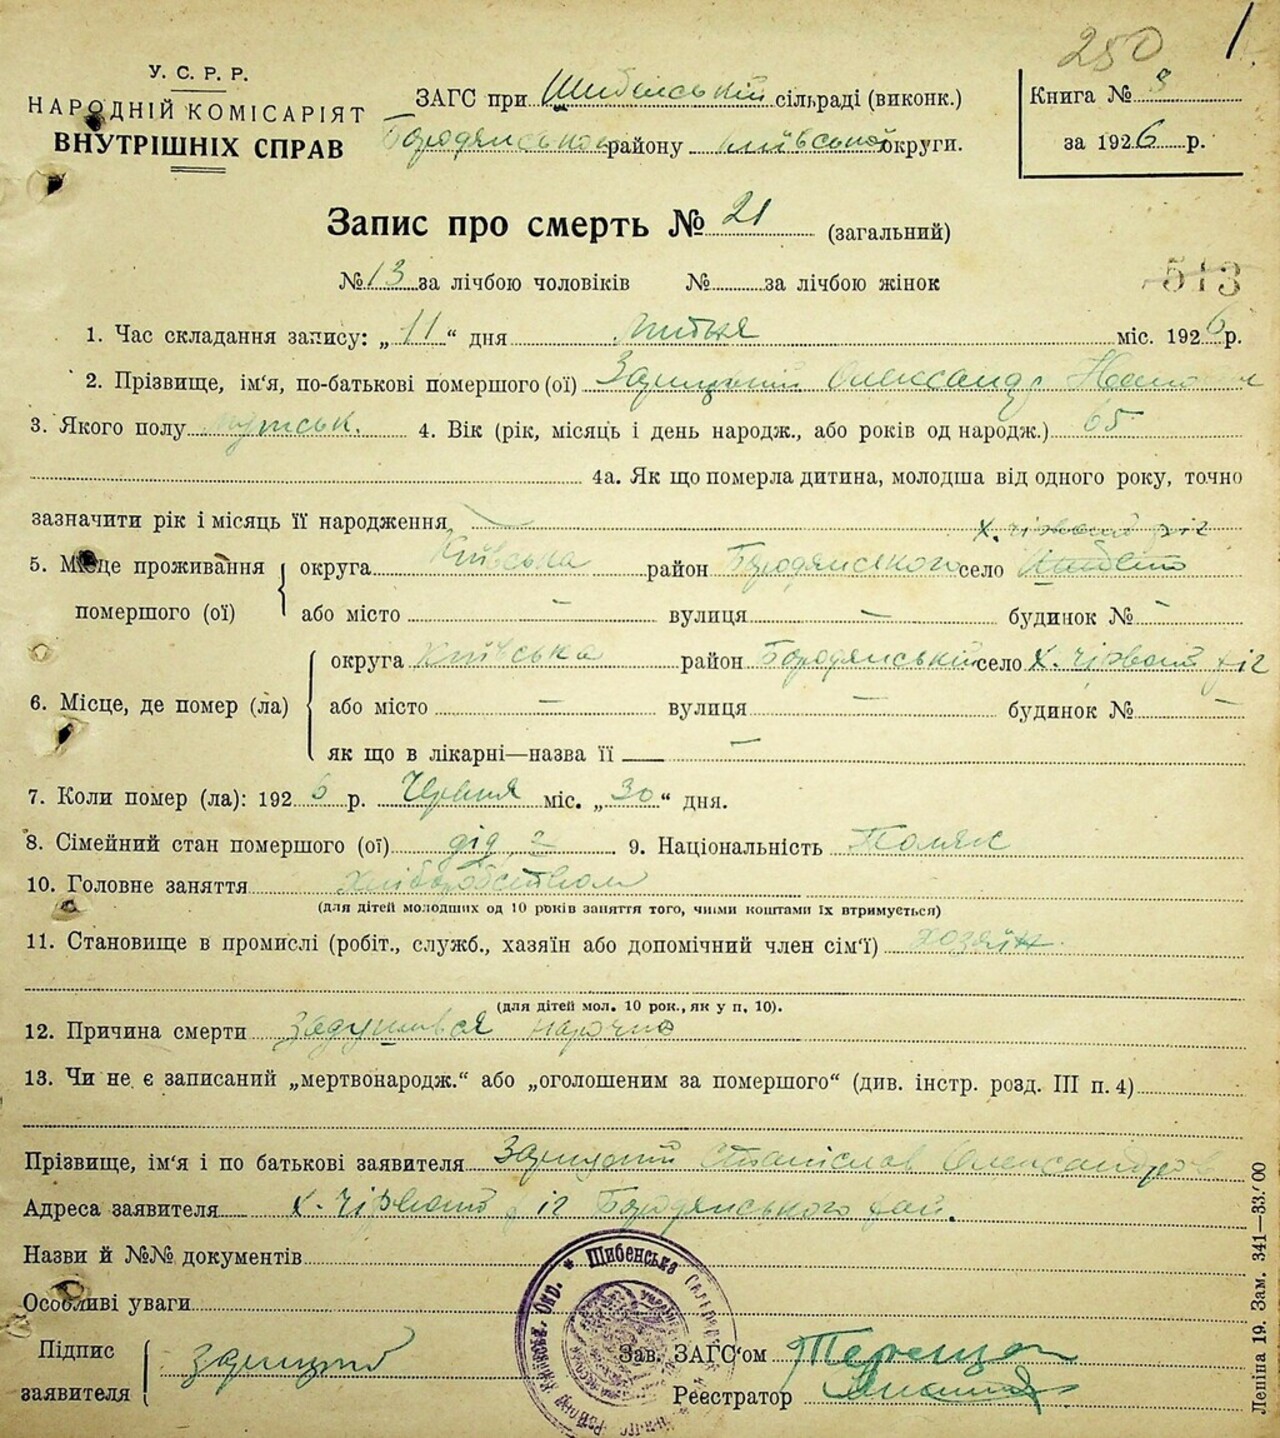 250
1
У. С. Р. Р.
НАРОДНІЙ КОМІСАРІЯТ
ВНУТРІШНІХ СПРАВ
ЗАГС при Шибенській сільраді (виконк.)
Бородянського району Київської округи.
Книга № 3
за 1926 р.
Запис про смерть № 21 (загальний)
№ 13 за лічбою чоловіків № за лічбою жінок
513
1. Час складання запису: „11“ дня липня міс. 1926 р.
2. Прізвище, ім‘я, по-батькові помершого (ої) Олександр
3. Якого полу мужськ. 4. Вік (рік, місяць і день народж., або років од народж.) 65
4а. Як що померла дитина, молодша від одного року, точно
зазначити рік і місяць її народження —
х. чірвоний ріг
5. Місце проживання помершого (ої) округа Київська район Бородянського село Шибено
або місто — вулиця — будинок № —
6. Місце, де помер (ла) округа Київська район Бородянський село х. чірвоний ріг
або місто — вулиця — будинок № —
як що в лікарні—назва її —
7. Коли помер (ла): 1926 р. Червня міс. „30“ дня.
8. Сімейний стан помершого (ої) дід, 2 9. Національність Поляк
10. Головне заняття хліборобством
(для дітей молодших од 10 років заняття того, чиїми коштами їх втримується)
11. Становище в промислі (робіт., служб., хазяїн або допомічний член сім‘ї) хозяїн.
(для дітей мол. 10 рок., як у п. 10).
12. Причина смерти задушився нарочно
13. Чи не є записаний „мертвонародж.“ або „оголошеним за помершого“ (див. інстр. розд. III п. 4)
Прізвище, ім‘я і по батькові заявителя Станіслав Олександров
Адреса заявителя х. чірвоний ріг Бородянського рай.
Назви й №№ документів
Особливі уваги
Підпис заявителя
Зав. ЗАГС‘ом
Реєстратор
* Шибенська Сільрада Київськ. Окр.
Леніна 19. Зам. 341—33.000